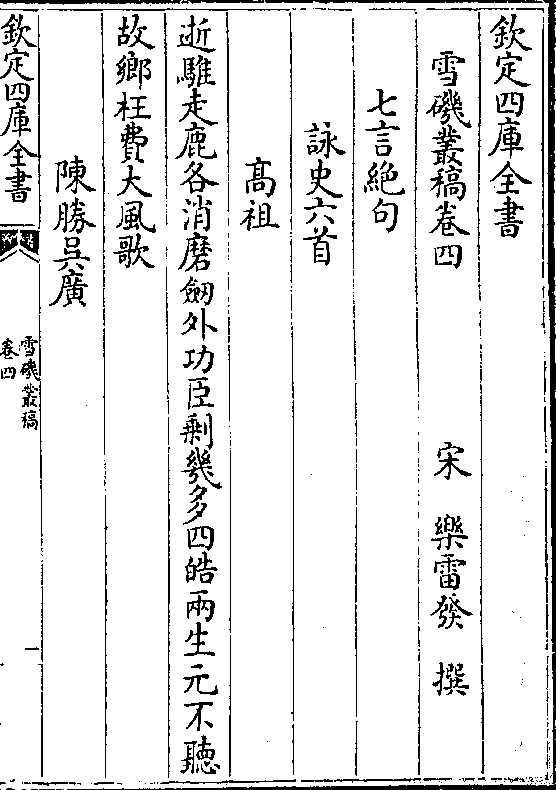 欽定四庫全書
雪磯叢稿卷四　宋　樂雷發　撰
七言絶句
詠史六首
髙祖
逝騅走鹿各消磨劒外功臣剩幾多四皓兩生元不聽
故鄉枉費大風歌
陳勝吳廣
欽定四庫全書
雪磯叢稿
卷四
一